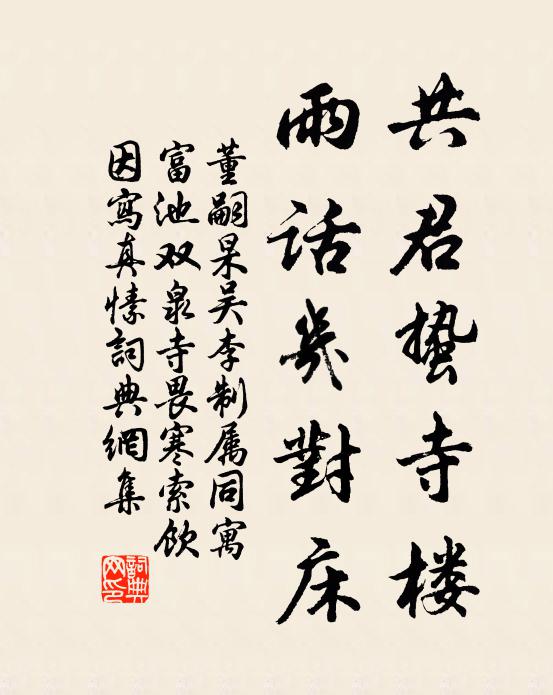 共君蛰寺楼
雨话几對床
董嗣杲吴李制属同寓
富池双泉寺畏寒索饮
因寫真愫詞典網集
詞典网印